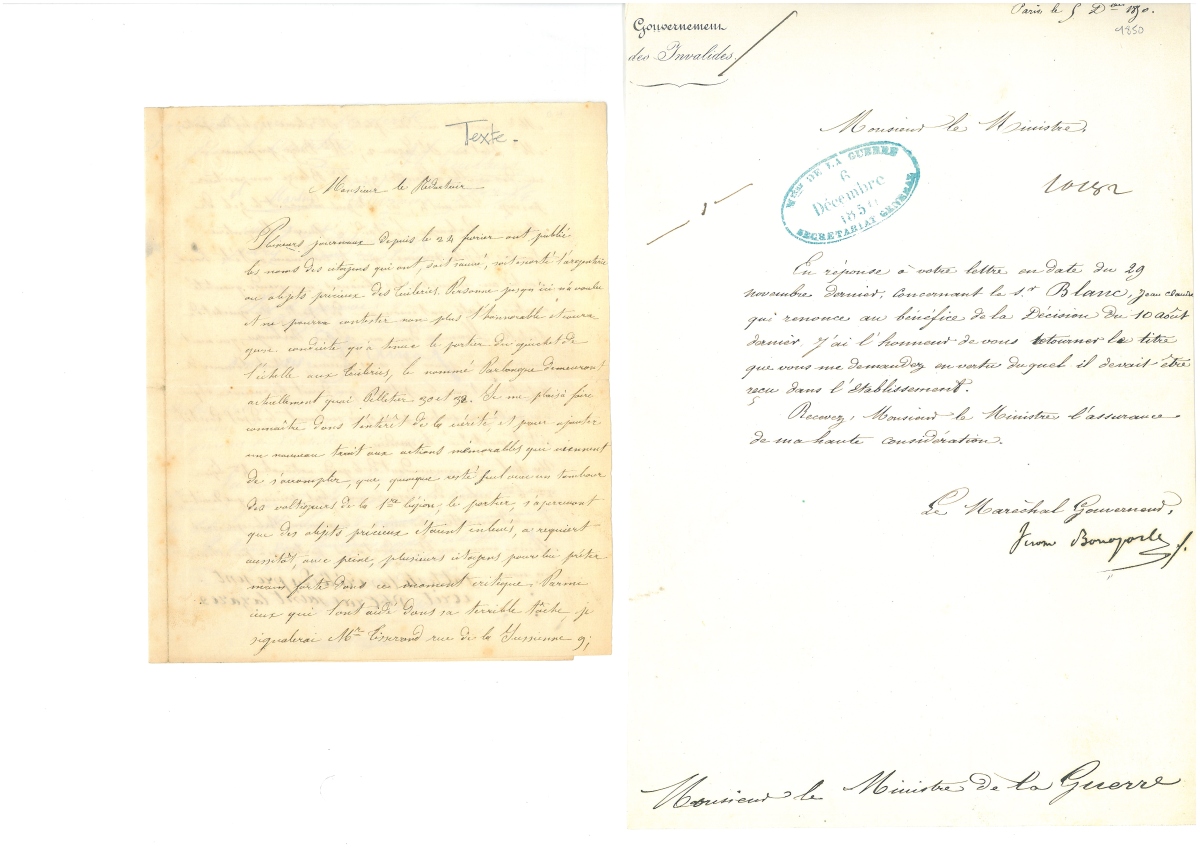 Texte.
Monsieur le Rédacteur
Plusieurs journaux depuis le 24 février ont publié
les noms des citoyens qui ont, soit sauvé, soit porté l'argenterie
ou objets précieux des Tuileries. Personne jusqu'ici n'a voulu
et ne pourra contester non plus l'honorable et
conduite qu'a tenue le portier du guichet de
l'échelle aux Tuileries, le nommé demeurant
actuellement quai Pelletier 30 et 32. Je me plais à faire
connaître dans l'intérêt de la vérité et pour ajouter
un nouveau trait aux actions mémorables qui viennent
de s'accomplir, que, quoique resté seul avec un tambour
des voltigeurs de la 1re légion, le portier, s'apercevant
que des objets précieux étaient enlevés, a requiert
aussitôt, avec peine, plusieurs citoyens pour lui prêter
main forte dans ce moment critique. Parmi
ceux qui l'ont aidé dans sa terrible tâche, je
signalerai Mr Tisserand rue de la Jussienne 9;
Gouvernement
des Invalides.
Paris le 5 Dbre 1850.
1850
Monsieur le Ministre,
Mtère DE LA GUERRE
6
Décembre
SECRETARIAT GENERAL
En réponse à votre lettre en date du 29
novembre dernier, concernant le s.r Blanc, Jean Claude
qui renonce au bénéfice de la Décision du 10 août
dernier, J'ai l'honneur de vous retourner le titre
que vous me demandez en vertu duquel il devait être
reçu dans l'Établissement.
Recevez, Monsieur le Ministre l'assurance
de ma haute considération.
Le Maréchal Gouverneur,
Jérôme Bonaparte
Monsieur le Ministre de la Guerre